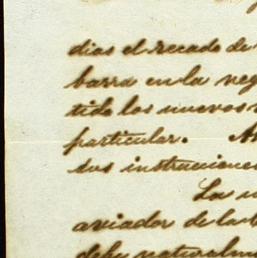 dias el recado de
barra en la neg
tido los nuevos
particular. A
sus instrucciones
La
aviador de la
debe naturalm